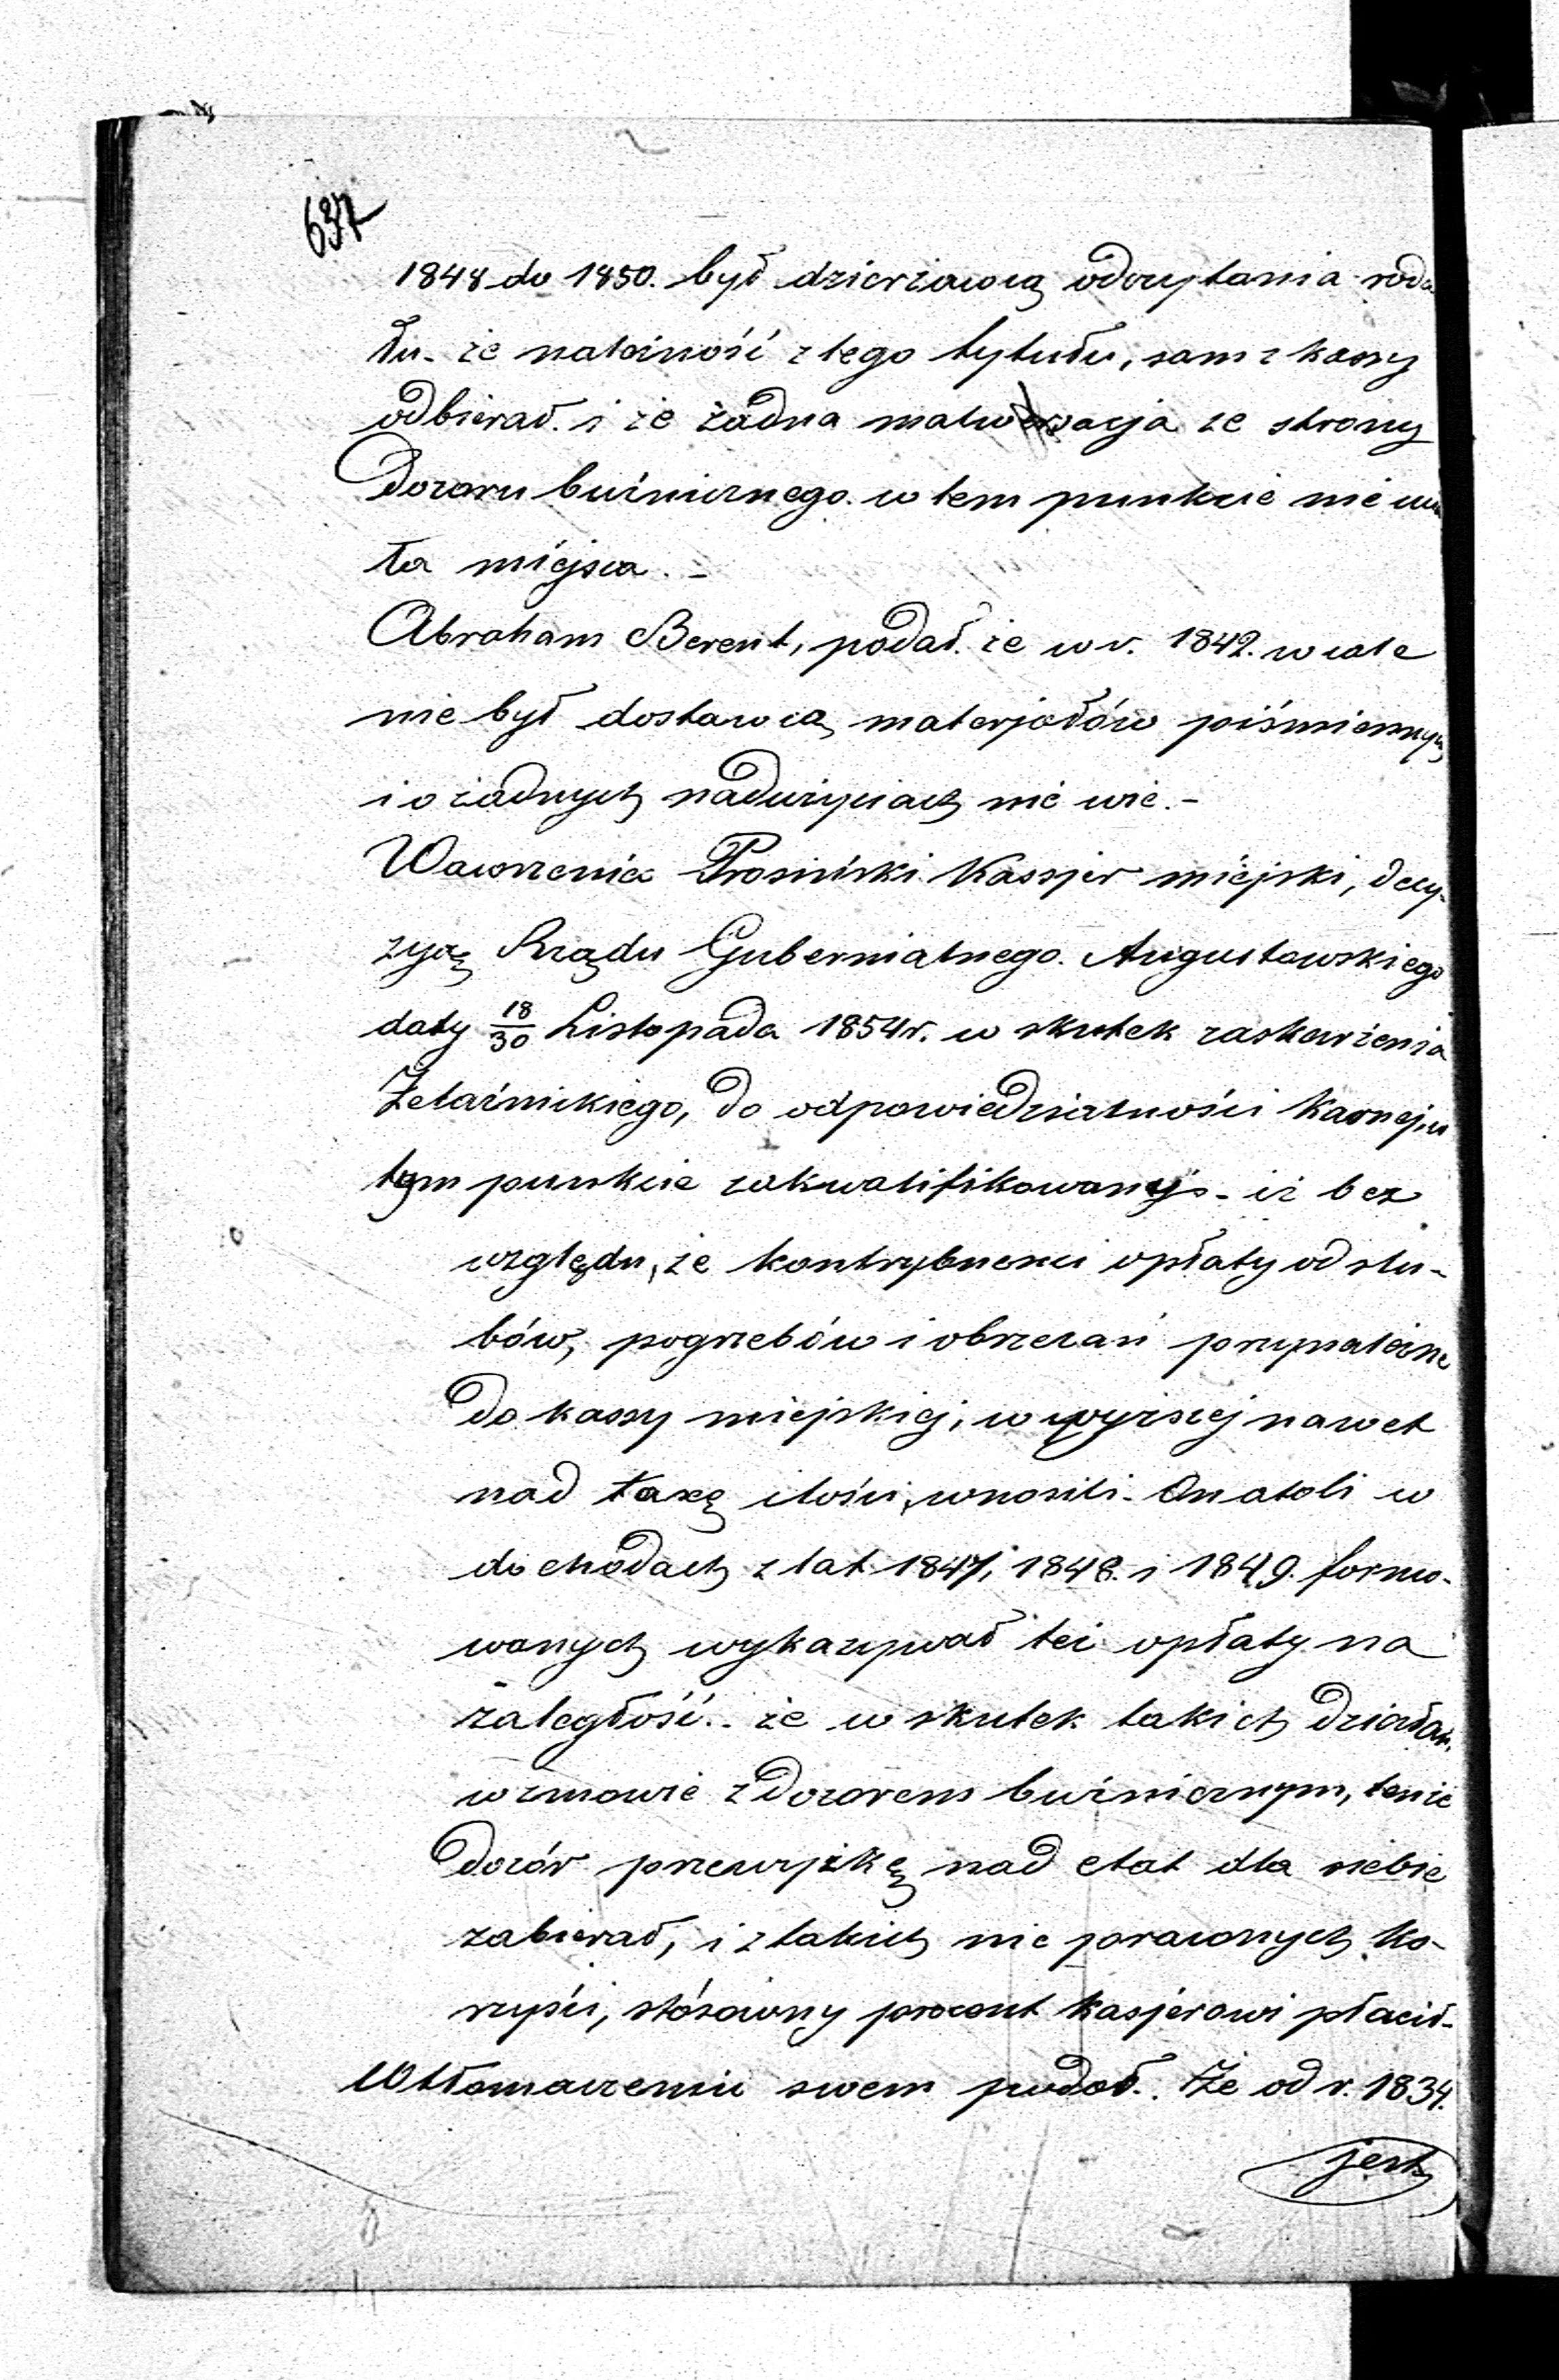 637
1848 do 1850. był dzierżawcą odczytania roda
łu. że należność z tego tytułu, sam z kassy
odbierał. i że żadna malwersacja ze strony
Dozoru bużnicznego. w tem punkcie nie mia
ła miejsca. –
Abraham Berent, podał. że w r. 1842. wcale
nie był dostawcą materjałów piśmiennych
i o żadnych nadużyciach nie wie. –
Wawrzeniec Prosiński Kassjer miejski, decy-
zyą Rządu Gubernialnego. Augustowskiego
daty 18/30 Listopada 1854 r. w skutek zaskarżenia
Żelaźnickiego, do odpowiedzialności karnej, w
tym punkcie zakwalifikowany – iż bez
względu, że kontrybuenci opłaty od slu-
bów, pogrzebów i obrzezań przynależne
do kassy miejskiej, w wyższej nawet
nad taxę ilości, wnosili –
dochodach z lat 1847, 1848. i 1849. formo-
wanych wykazywał też opłaty na
zaległość.. że w skutek takich działań,
w zmowie z Dozorem bużnicznym, tenże
Dozór przewyżkę nad etat dla siebie
zabierał, i z takich nie prawnych ko-
rzyści, stósowny procent kasjerowi płacił –
W tłomaczeniu swem podał.. Że od r. 1834.
jest